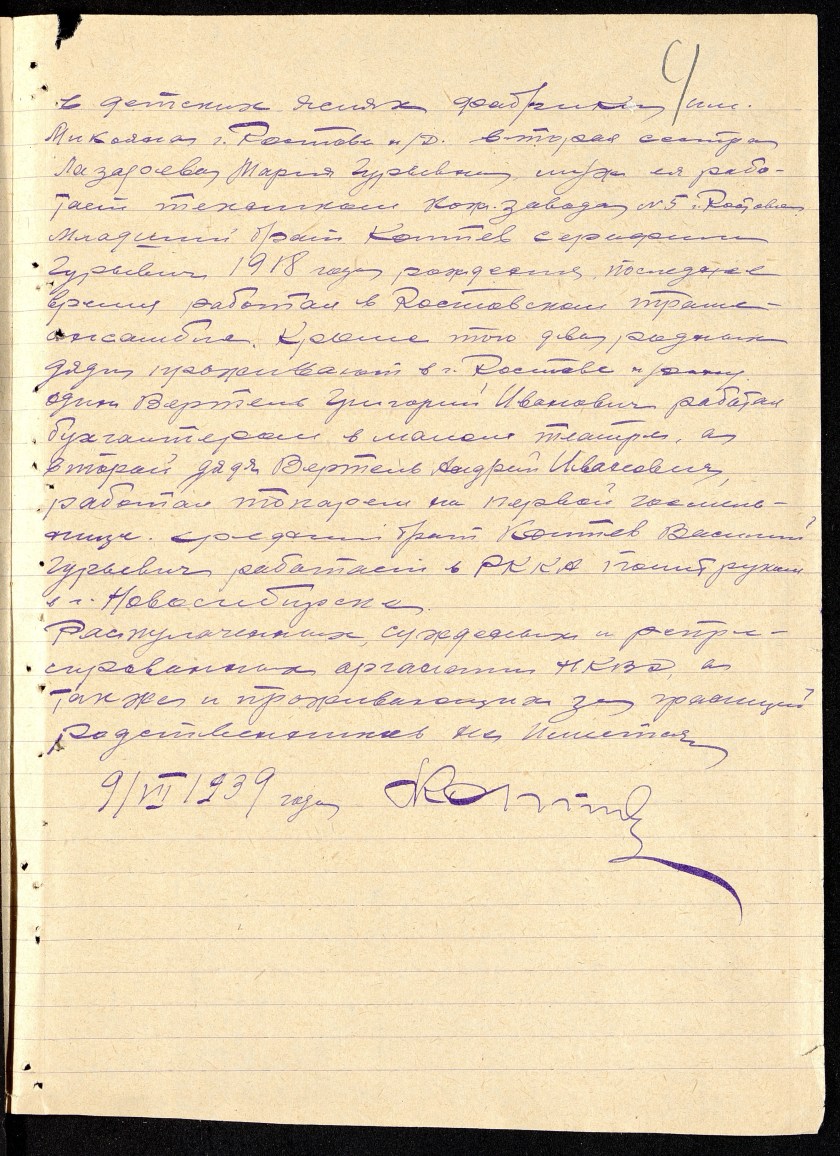 9
в детских яслях фабрики им.
Микояна г. Ростова н/Д. вторая сестра
Лазарева Мария Гурьевна, муж ея рабо-
тает техником кож. завода №5 г. Ростова
младший брат Коптев Серафим
Гурьевич 1918 года рождения, последнее
время работал в Ростовском
ансамбле. Кроме того два родных
дяди проживают в г. Ростове н/дону
один Вертель Григорий Иванович работал
бухгалтером в малом театре, а
второй дядя Вертель Андрей Иванович,
работал токарем на первой госмель-
нице. средний брат Коптев Василий
Гурьевич работает в РККА политруком
в г. Новосибирске.
Раскулаченных, сужденых и репре-
сированных органами НКВД, а
также и проживающих за границей
родственников не имеется
9/VII 1939 года